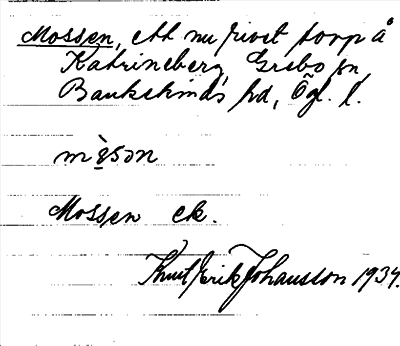 Mossen, ett nu rivet torp å
Katrineberg, Grebo sn
Bankekinds hd, Ögl. l.
mòsən
Mossen ek.
Knut Erik Johansson 1934.